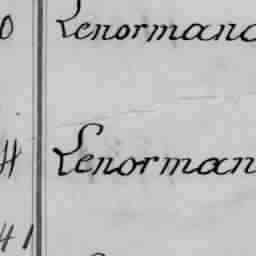 0 Lenormand
H Lenorman
41